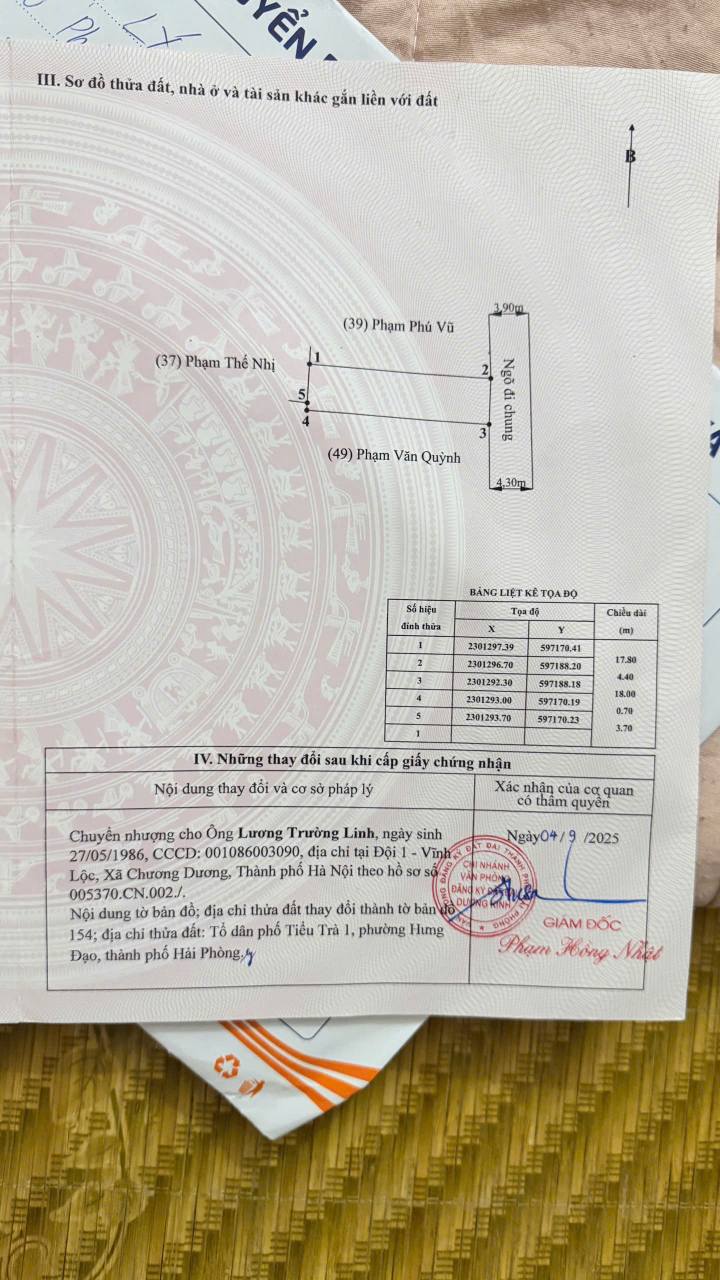 YỂN
Ph
LX
III. Sơ đồ thửa đất, nhà ở và tài sản khác gắn liền với đất
B
3,90m
(39) Phạm Phú Vũ
(37) Phạm Thế Nhị
1
2
Ngõ đi chung
5
4
3
(49) Phạm Văn Quỳnh
4,30m
BẢNG LIỆT KÊ TỌA ĐỘ
Số hiệu đỉnh thửa Tọa độ Chiều dài (m)
X Y
1 2301297.39 597170.41
17.80
2 2301296.70 597188.20
4.40
3 2301292.30 597188.18
18.00
4 2301293.00 597170.19
0.70
5 2301293.70 597170.23
3.70
1
IV. Những thay đổi sau khi cấp giấy chứng nhận
Nội dung thay đổi và cơ sở pháp lý
Xác nhận của cơ quan
có thẩm quyền
Chuyển nhượng cho Ông Lương Trường Linh, ngày sinh
27/05/1986, CCCD: 001086003090, địa chỉ tại Đội 1 - Vĩnh
Lộc, Xã Chương Dương, Thành phố Hà Nội theo hồ sơ số
005370.CN.002./.
Nội dung tờ bản đồ; địa chỉ thửa đất thay đổi thành tờ bản đồ
154; địa chỉ thửa đất: Tổ dân phố Tiểu Trà 1, phường Hưng
Đạo, thành phố Hải Phòng./.
Ngày 04/9/2025
CHI NHÁNH
VĂN PHÒNG
ĐĂNG KÝ ĐẤT ĐAI
DƯƠNG KINH
GIÁM ĐỐC
Phạm Hồng Nhật